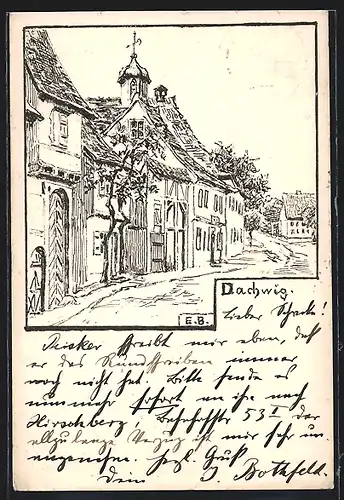 Dachwig.
E.B.
Lieber Schacke!
Fricker schreibt mir eben, daß
er das Rundschreiben immer
noch nicht hat. Bitte sende es
nunmehr sofort an ihn nach
Hirschberg, Bahnhofstr 53 I der
allzulange Verzug ist mir sehr un-
angenehm. Herzl. Gruß
Dein J. Bothfeld.